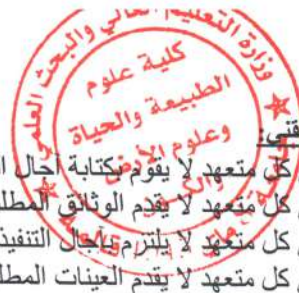 وزارة التعليم العالي والبحث العلمي
كلية علوم
الطبيعة والحياة
وعلوم الأرض
والكون
كل متعهد لا يقوم بكتابة آجال
كل متعهد لا يقدم الوثائق
كل متعهد لا يلتزم بآجال التنفيذ
كل متعهد لا يقدم العينات